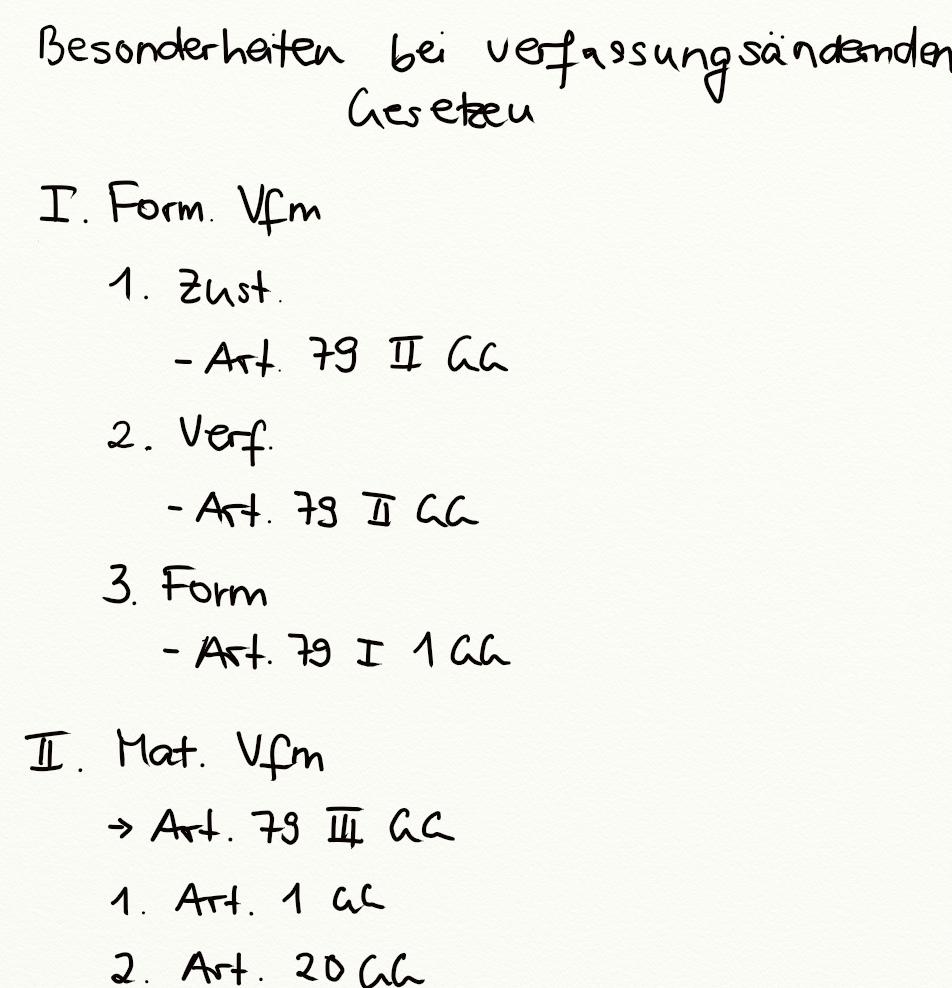 Besonderheiten bei verfassungsändernden
Gesetzen
I. Form. Vfm
1. Zust.
- Art. 79 II GG
2. Verf.
- Art. 79 II GG
3. Form
- Art. 79 I 1 GG
II. Mat. Vfm
→ Art. 79 III GG
1. Art. 1 GG
2. Art. 20 GG